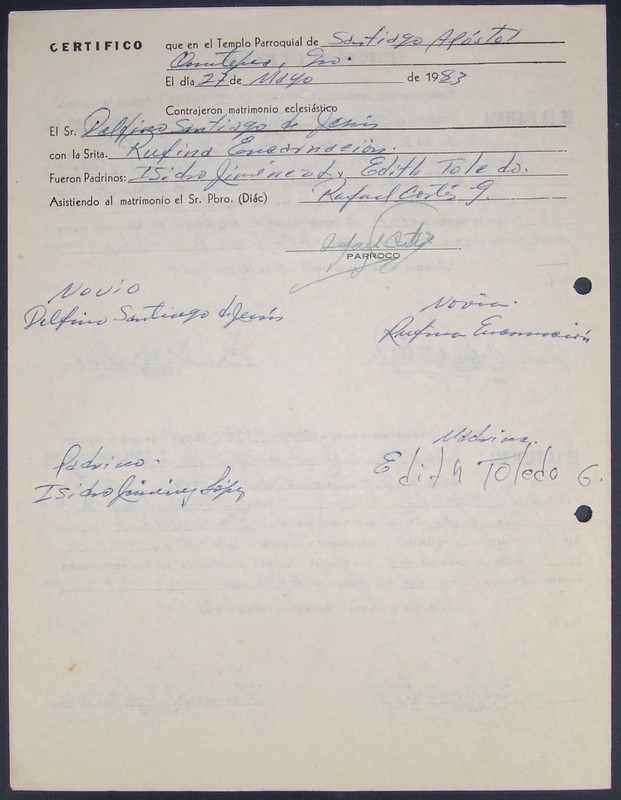 CERTIFICO que en el Templo Parroquial de Santiago Apóstol
Ometepec, Gro.
El día 27 de Mayo de 1983
Contrajeron matrimonio eclesiástico
El Sr. Delfino Santiago de Jesús
con la Srita. Rufina Encarnación.
Fueron Padrinos: Isidro Jiménez L. y Edith Toledo.
Asistiendo al matrimonio el Sr. Pbro. (Diác) Rafael Cortés G.
Rafael Cortés
PARROCO
Novio
Delfino Santiago de Jesús
Novia.
Rufina Encarnación
Padrino.
Isidro Jiménez López
Madrina.
Edith Toledo G.